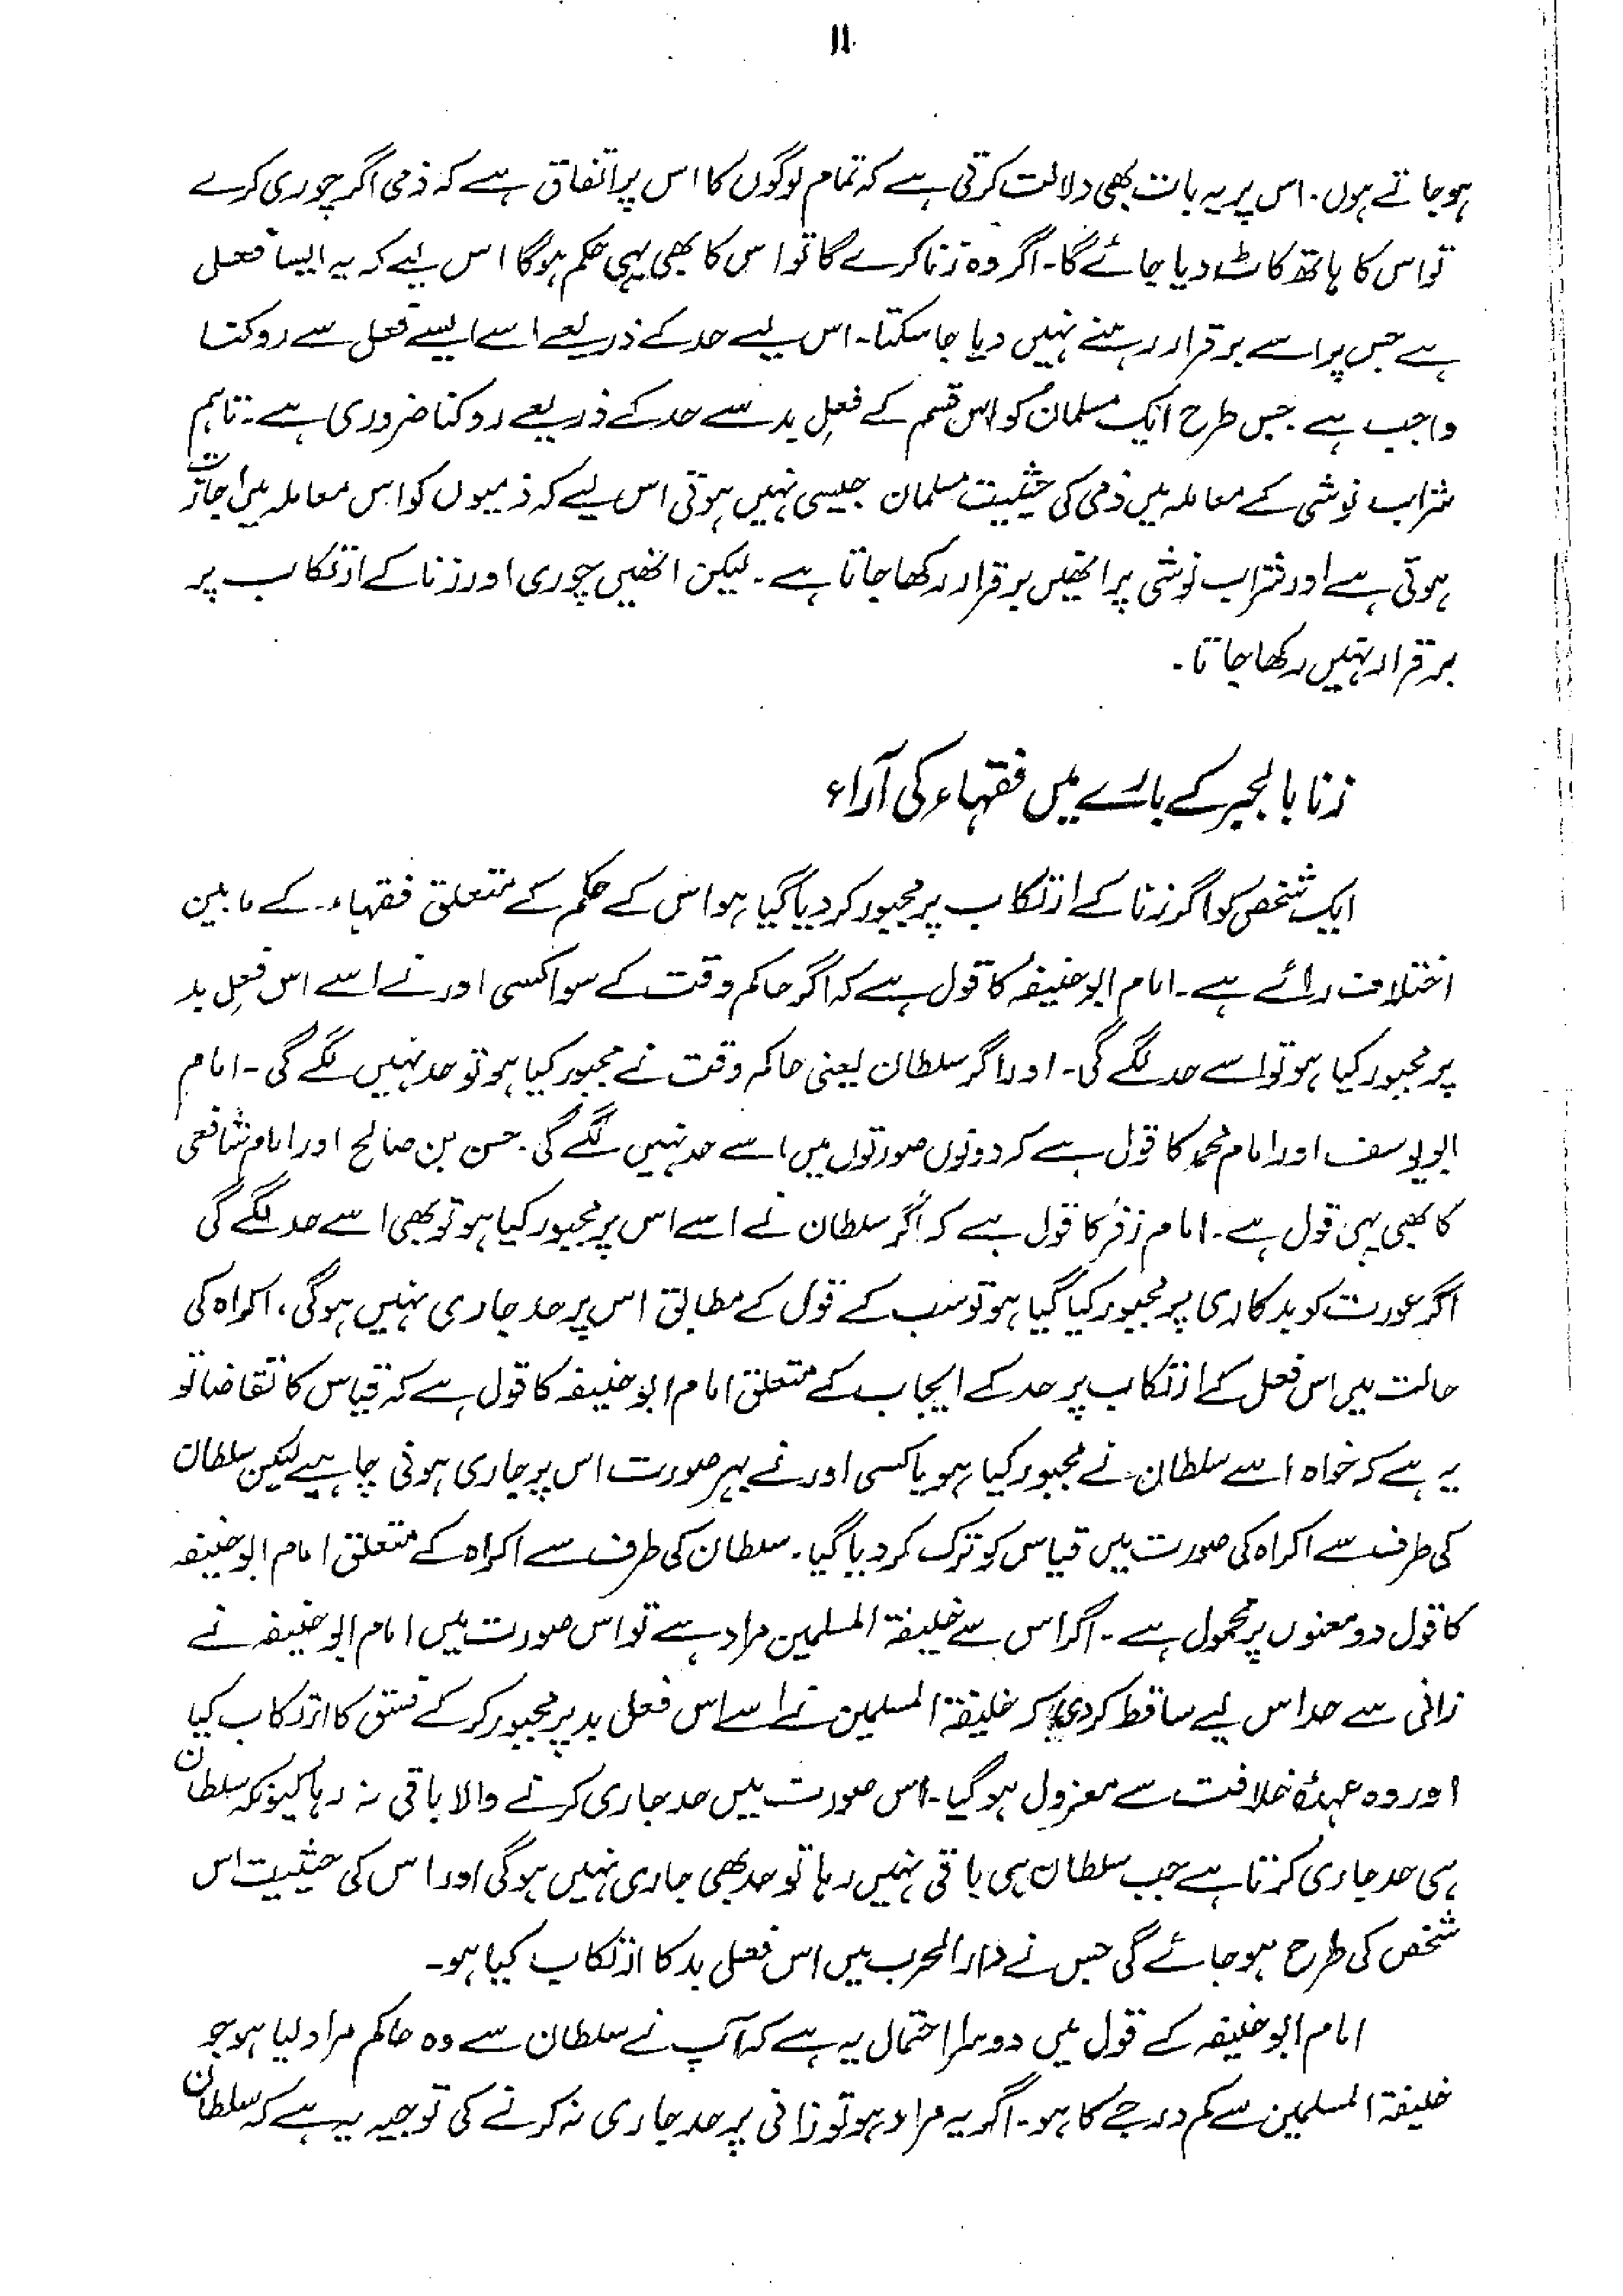 ۱۱
ہوجاتے ہوں۔ اس پر یہ بات بھی دلالت کرتی ہے کہ تمام لوگوں کا اس پر اتفاق ہے کہ ذمی اگر چوری کرے
تو اس کا ہاتھ کاٹ دیا جائے گا۔ اگر وہ زنا کرے گا تو اس کا بھی یہی حکم ہوگا اس لیے کہ یہ ایسا فعل
ہے جس پر اسے برقرار رہنے نہیں دیا جا سکتا۔ اس لیے حد کے ذریعے اسے ایسے فعل سے روکنا
واجب ہے۔ جس طرح ایک مسلمان کو اس قسم کے فعلِ بد سے حد کے ذریعے روکنا ضروری ہے۔ تاہم
شراب نوشی کے معاملہ میں ذمی کی حیثیت مسلمان جیسی نہیں ہوتی اس لیے کہ ذمیوں کو اس معاملہ میں اجازت
ہوتی ہے اور شراب نوشی پر انھیں برقرار رکھا جاتا ہے۔ لیکن انھیں چوری اور زنا کے ارتکاب پر
برقرار نہیں رکھا جاتا۔
زنا بالجبر کے بارے میں فقہاء کی آراء
ایک شخص کو اگر زنا کے ارتکاب پر مجبور کر دیا گیا ہو اس کے حکم کے متعلق فقہاء کے مابین
اختلاف رائے ہے۔ امام ابو حنیفہ کا قول ہے کہ اگر حاکم وقت کے سوا کسی اور نے اسے اس فعلِ بد
پر مجبور کیا ہو تو اسے حد لگے گی۔ اور اگر سلطان یعنی حاکم وقت نے مجبور کیا ہو تو حد نہیں لگے گی۔ امام
ابو یوسف اور امام محمد کا قول ہے کہ دونوں صورتوں میں اسے حد نہیں لگے گی۔ حسن بن صالح اور امام شافعی
کا بھی یہی قول ہے۔ امام زفر کا قول ہے کہ اگر سلطان نے اسے اس پر مجبور کیا ہو تو بھی اسے حد لگے گی
اگر عورت کو بدکاری پر مجبور کیا گیا ہو تو سب کے قول کے مطابق اس پر حد جاری نہیں ہوگی، اکراہ کی
حالت میں اس فعل کے ارتکاب پر حد کے ایجاب کے متعلق امام ابو حنیفہ کا قول ہے کہ قیاس کا تقاضا تو
یہ ہے کہ خواہ اسے سلطان نے مجبور کیا ہو یا کسی اور نے بہر صورت اس پر جاری ہونی چاہیے لیکن سلطان
کی طرف سے اکراہ کی صورت میں قیاس کو ترک کر دیا گیا۔ سلطان کی طرف سے اکراہ کے متعلق امام ابو حنیفہ
کا قول دو معنوں پر محمول ہے۔ اگر اس سے خلیفۃ المسلمین مراد ہے تو اس صورت میں امام ابو حنیفہ نے
زانی سے حد اس لیے ساقط کر دی کہ خلیفۃ المسلمین نے اسے اس فعل بد پر مجبور کر کے فسق کا ارتکاب کیا
اور وہ عہدۂ خلافت سے معزول ہو گیا۔ اس صورت میں حد جاری کرنے والا باقی نہ رہا کیونکہ سلطان
ہی حد جاری کرتا ہے جب سلطان ہی باقی نہیں رہا تو حد بھی جاری نہیں ہوگی اور اس کی حیثیت اس
شخص کی طرح ہو جائے گی جس نے دار الحرب میں اس فعل بد کا ارتکاب کیا ہو۔
امام ابو حنیفہ کے قول میں دوسرا احتمال یہ ہے کہ آپ نے سلطان سے وہ حاکم مراد لیا ہو جو
خلیفۃ المسلمین سے کم درجے کا ہو۔ اگر یہ مراد ہو تو زانی پر حد جاری نہ کرنے کی توجیہ یہ ہے کہ سلطان